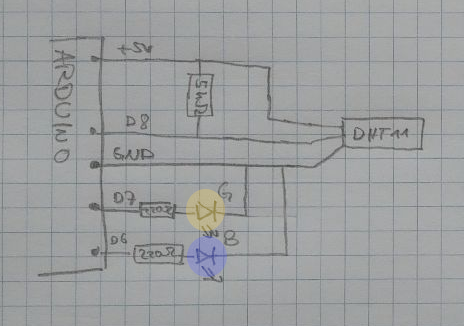 ARDUINO
+5V
5kΩ
D8
DHT11
GND
D7
220Ω
G
D6
220Ω
B